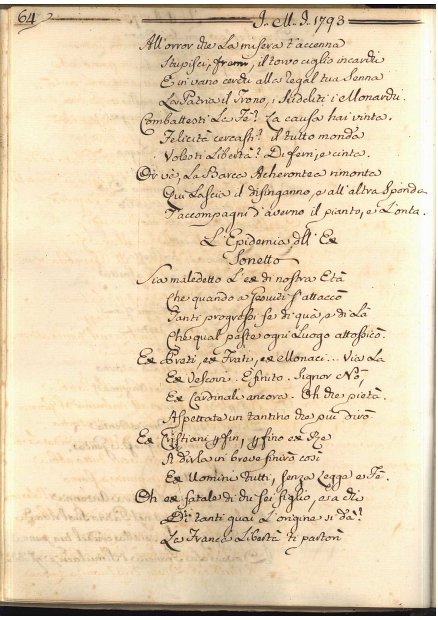 64 J. M. J. 1793
All'orror che La misera t'accenna
Stupisci, fremi, il torvo ciglio incardi
E in vano cerchi alla regal tua Senna
La Patria il Trono, i Fideliti i Monardi.
Combattesti La Fe? La causa hai vinta.
Felicità cercasti? il tutto monda
Volesti Libertà? Di ferri, e cinta.
Or vè, La Barca Acherontea rimonta
Qui Lascia il disinganno, e all'altra Sponda
T'accompagni d'averno il pianto, e L'onta.
L'Epidemia dell'Ex
Sonetto
Sia maledetto L'ex di nostra Età
Che quando a Gesuiti s'attaccò
Tanti progressi fe di quà, e di Là
Che qual peste ogni Luogo attossicò.
Ex Frati, ex Frati, ex Monaci... Via La
Ex Vescovi. E finito. Signor Nò,
Ex Cardinali ancora. Oh che pietà.
Aspettate un tantino che più dirò
Ex Cristiani per fin, per fino ex Re
A dirla in breve finirà così
Ex Uomini Tutti, senza Legge e Fe.
Oh ex fatale di chi sei figlio, e sa chi
Di tanti guai L'origine si dà?
La Franca Libertà ti partorì